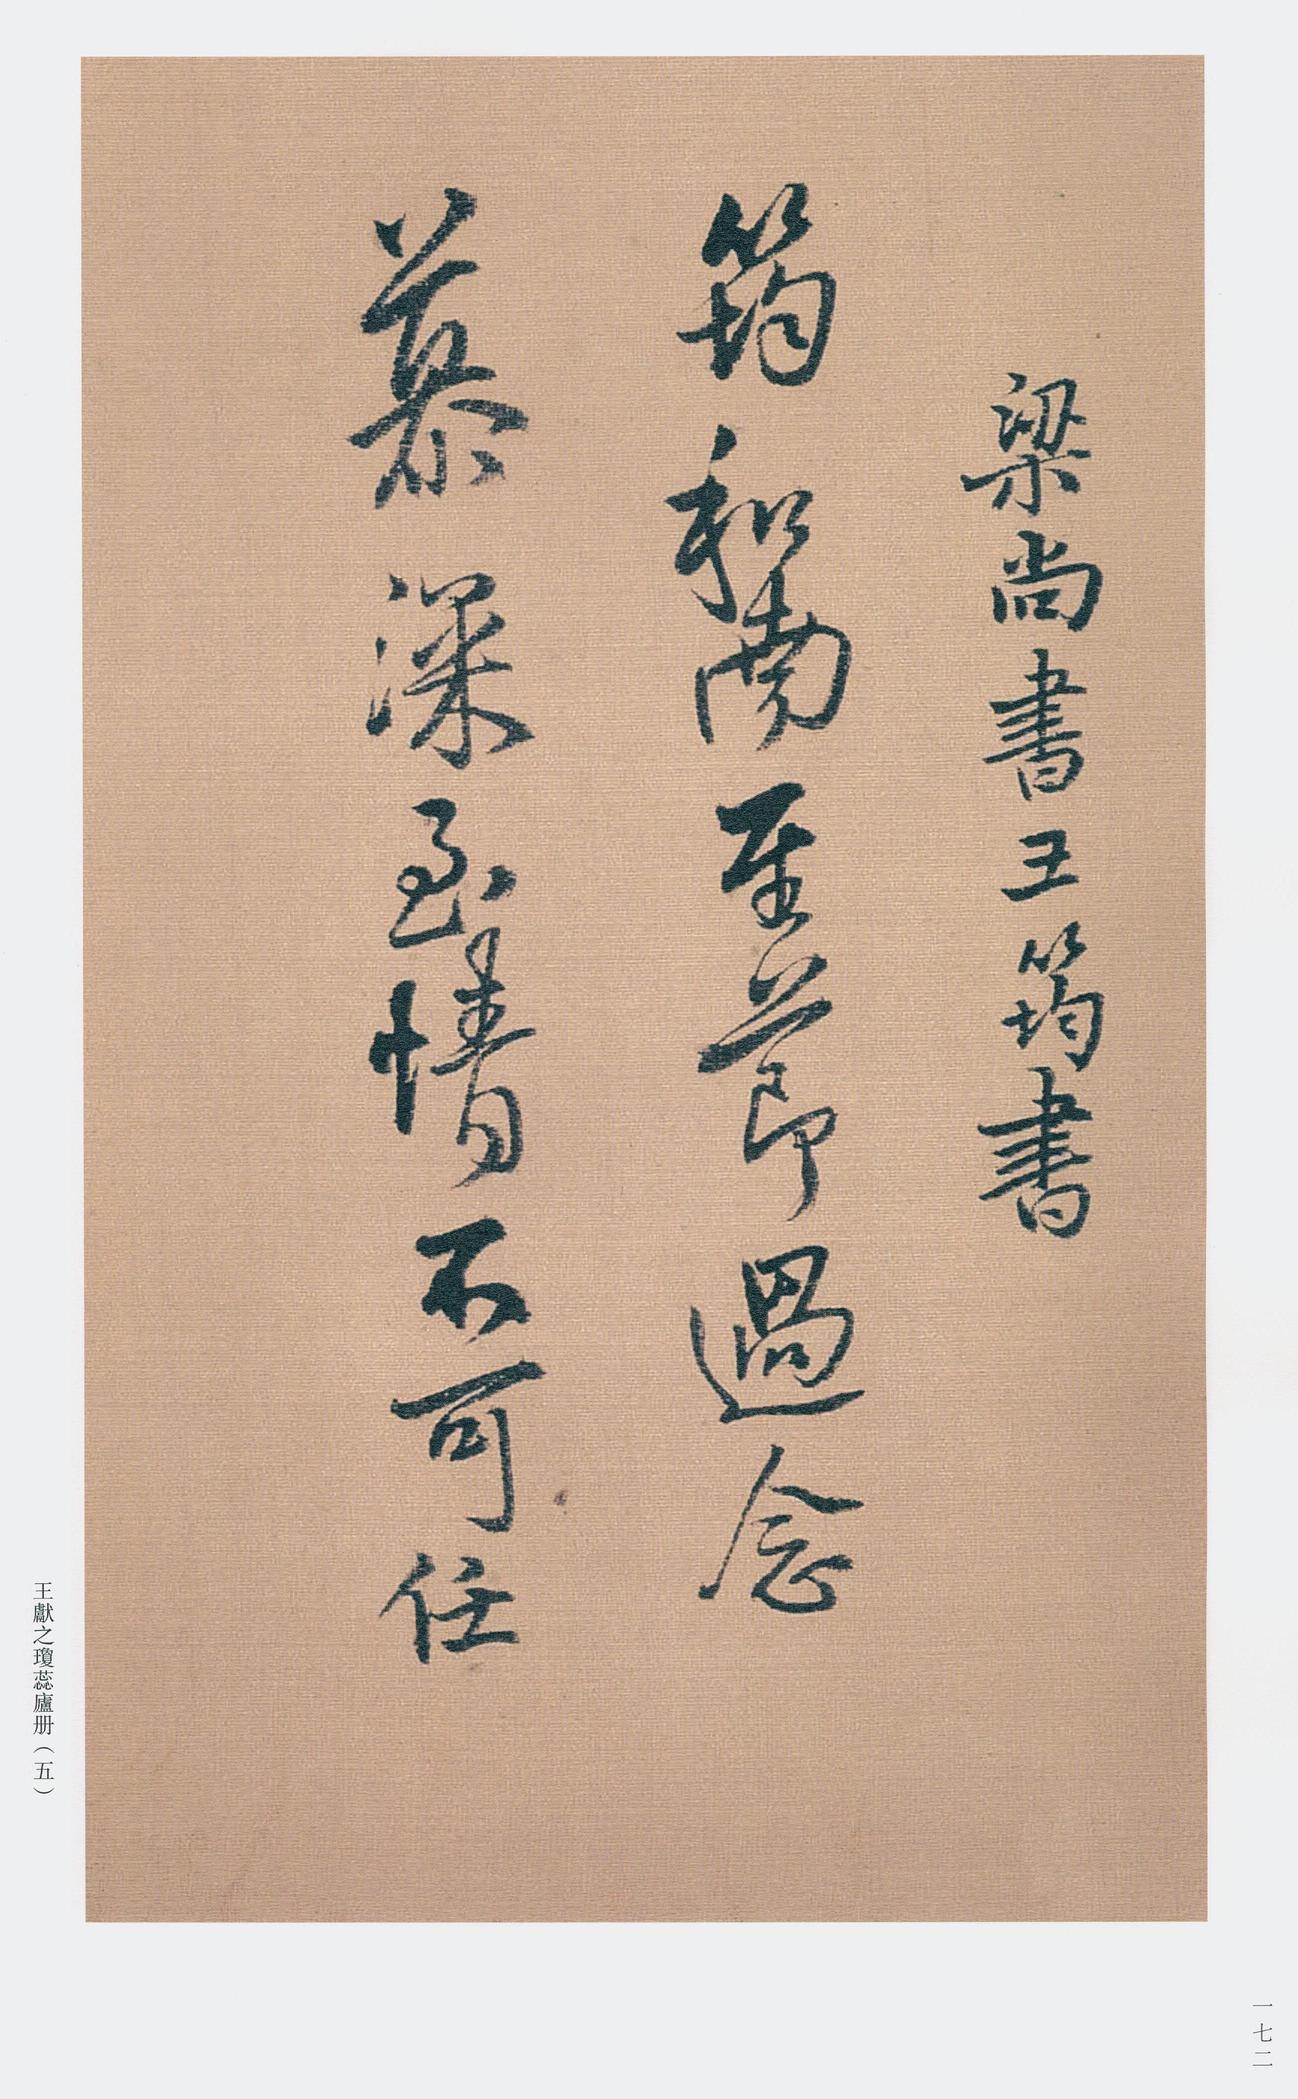 梁尚書王筠書
筠和南至節過念
慕深至情不可任
王獻之瓊蕊廬册（五）
一七二